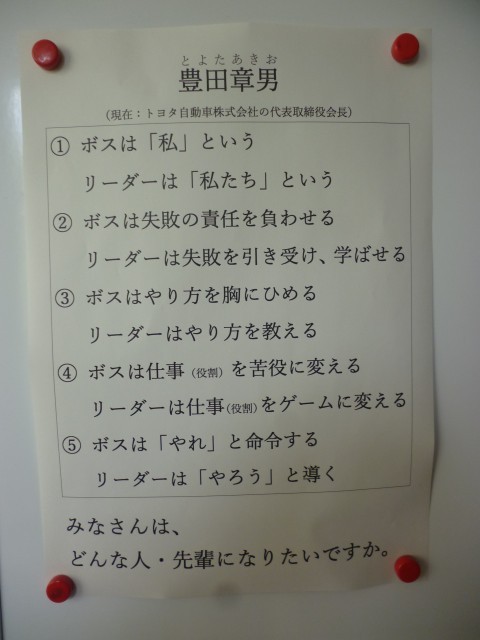 とよたあきお
豊田章男
(現在：トヨタ自動車株式会社の代表取締役会長)
① ボスは「私」という
リーダーは「私たち」という
② ボスは失敗の責任を負わせる
リーダーは失敗を引き受け、学ばせる
③ ボスはやり方を胸にひめる
リーダーはやり方を教える
④ ボスは仕事(役割)を苦役に変える
リーダーは仕事(役割)をゲームに変える
⑤ ボスは「やれ」と命令する
リーダーは「やろう」と導く
みなさんは、
どんな人・先輩になりたいですか。